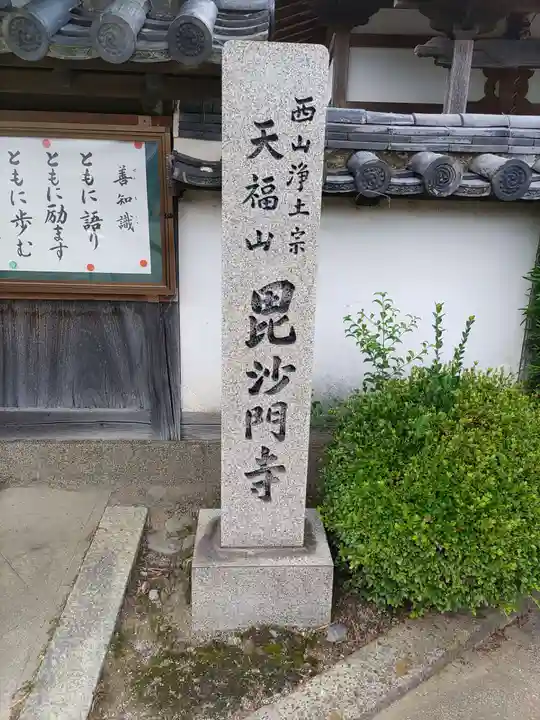 西山浄土宗
天福山 毘沙門寺
善知識
ともに語り
ともに励ます
ともに歩む